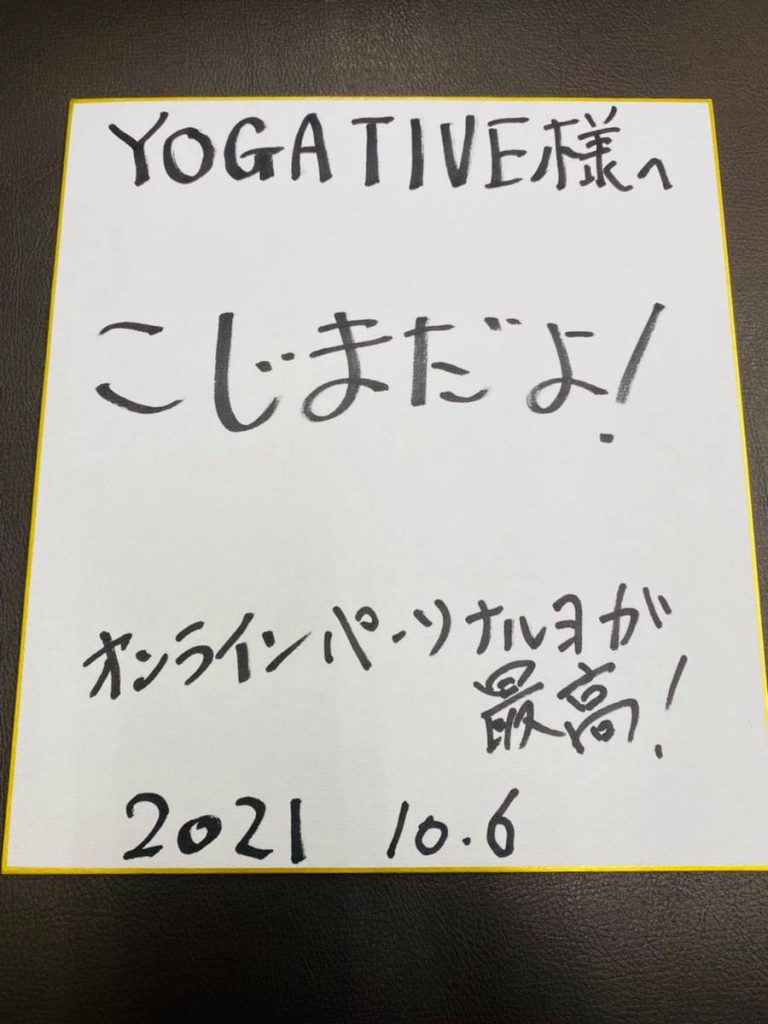 YOGATIVE様へ
こじまだよ!
オンラインパーソナルヨガ
最高!
2021 10.6